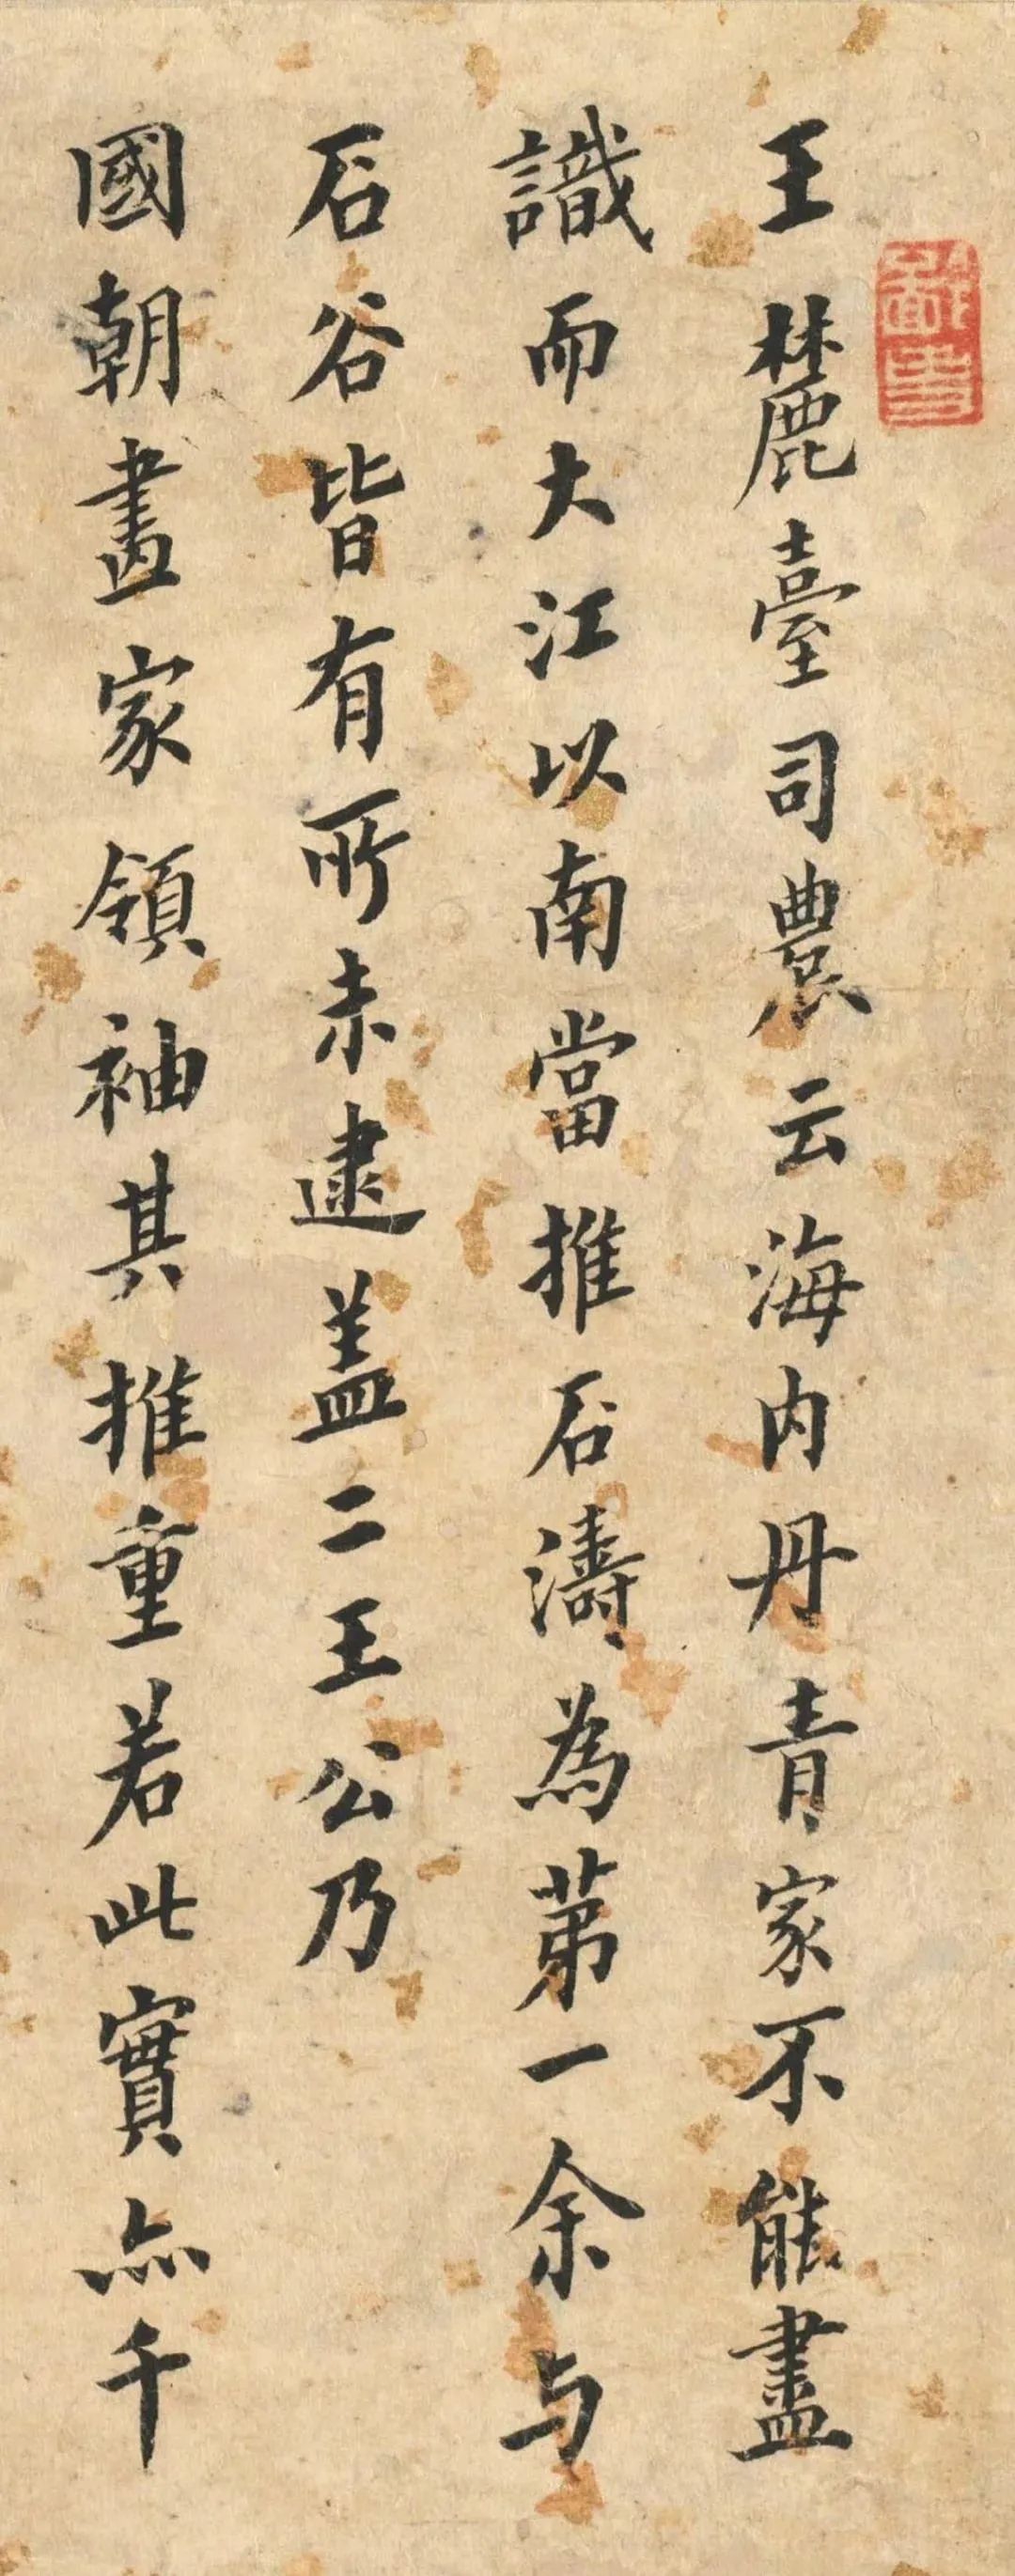 王麓臺司農云海内丹青家不能盡
識而大江以南當推石濤為第一余与
石谷皆有所未逮盖二王公乃
國朝畫家領袖其推重若此實亦千